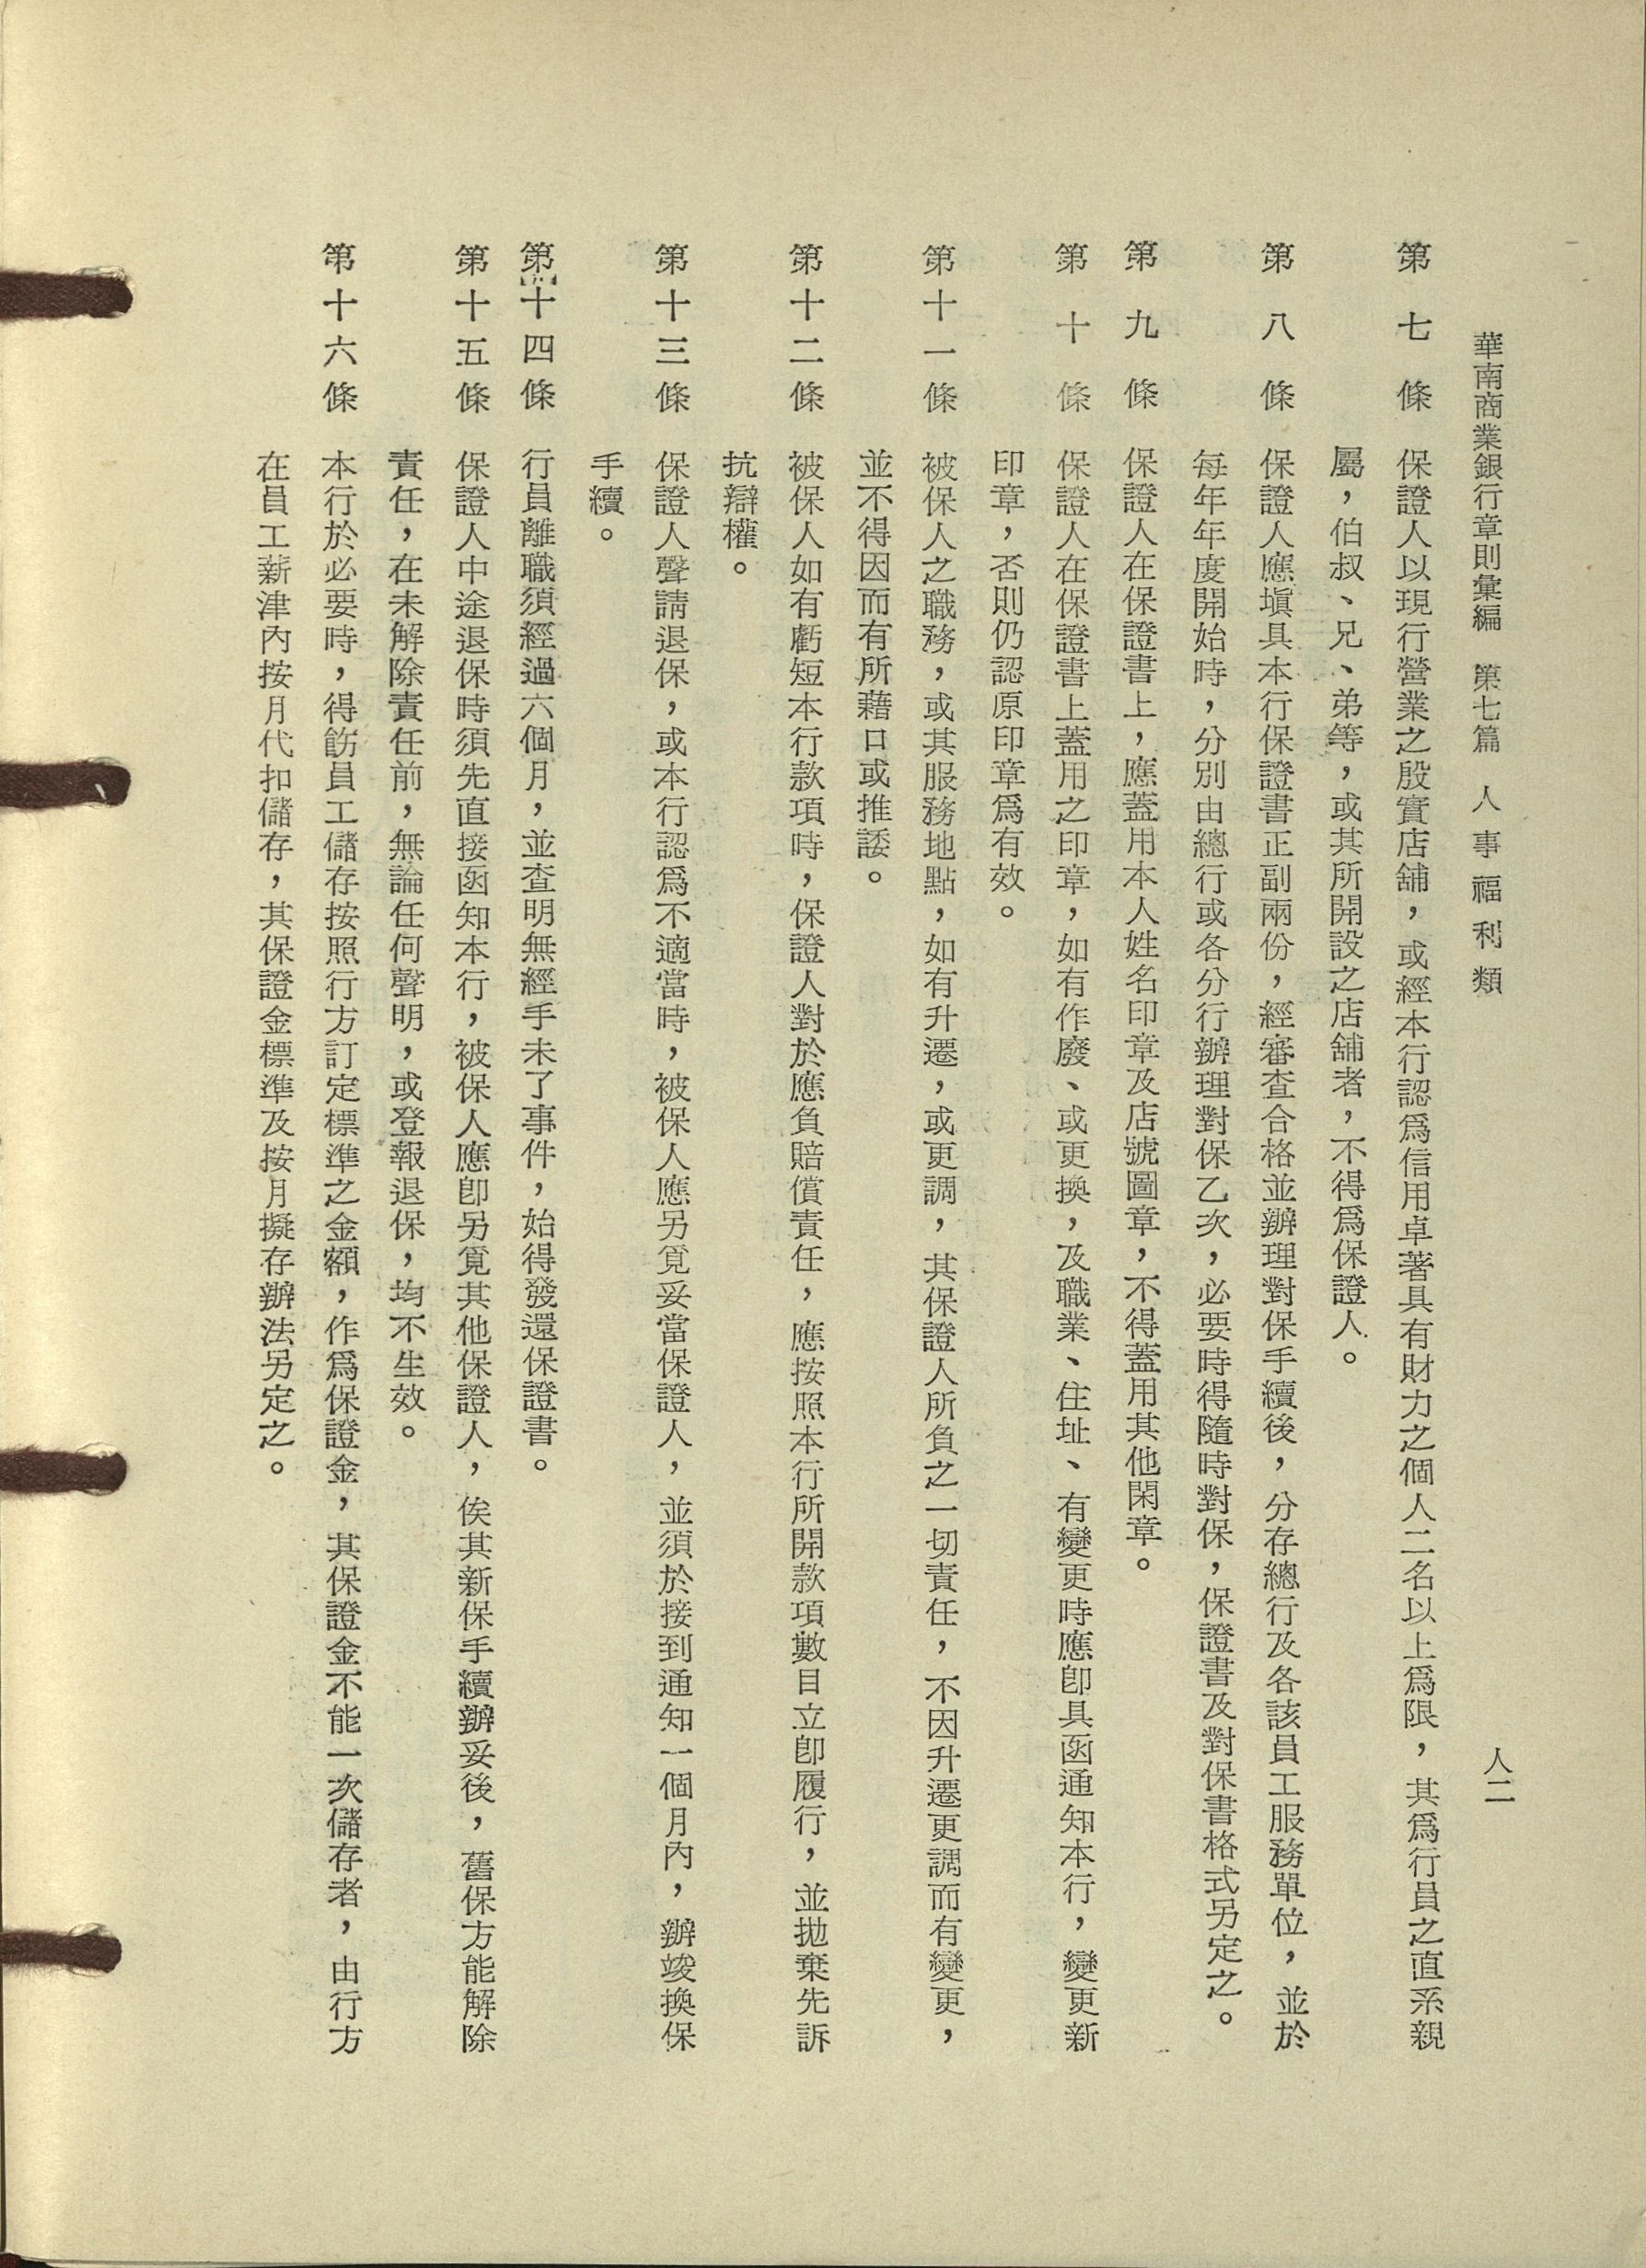 華南商業銀行章則彙編　第七篇　人事福利類　人二
第七條　保證人以現行營業之殷實店舖，或經本行認爲信用卓著具有財力之個人二名以上爲限，其爲行員之直系親
屬，伯叔、兄、弟等，或其所開設之店舖者，不得爲保證人。
第八條　保證人應塡具本行保證書正副兩份，經審查合格並辦理對保手續後，分存總行及各該員工服務單位，並於
每年年度開始時，分別由總行或各分行辦理對保乙次，必要時得隨時對保，保證書及對保書格式另定之。
第九條　保證人在保證書上，應蓋用本人姓名印章及店號圖章，不得蓋用其他閑章。
第十條　保證人在保證書上蓋用之印章，如有作廢、或更換，及職業、住址、有變更時應卽具函通知本行，變更新
印章，否則仍認原印章爲有效。
第十一條　被保人之職務，或其服務地點，如有升遷，或更調，其保證人所負之一切責任，不因升遷更調而有變更，
並不得因而有所藉口或推諉。
第十二條　被保人如有虧短本行款項時，保證人對於應負賠償責任，應按照本行所開款項數目立卽履行，並拋棄先訴
抗辯權。
第十三條　保證人聲請退保，或本行認爲不適當時，被保人應另覓妥當保證人，並須於接到通知一個月內，辦竣換保
手續。
第十四條　行員離職須經過六個月，並查明無經手未了事件，始得發還保證書。
第十五條　保證人中途退保時須先直接函知本行，被保人應卽另覓其他保證人，俟其新保手續辦妥後，舊保方能解除
責任，在未解除責任前，無論任何聲明，或登報退保，均不生效。
第十六條　本行於必要時，得飭員工儲存按照行方訂定標準之金額，作爲保證金，其保證金不能一次儲存者，由行方
在員工薪津內按月代扣儲存，其保證金標準及按月擬存辦法另定之。